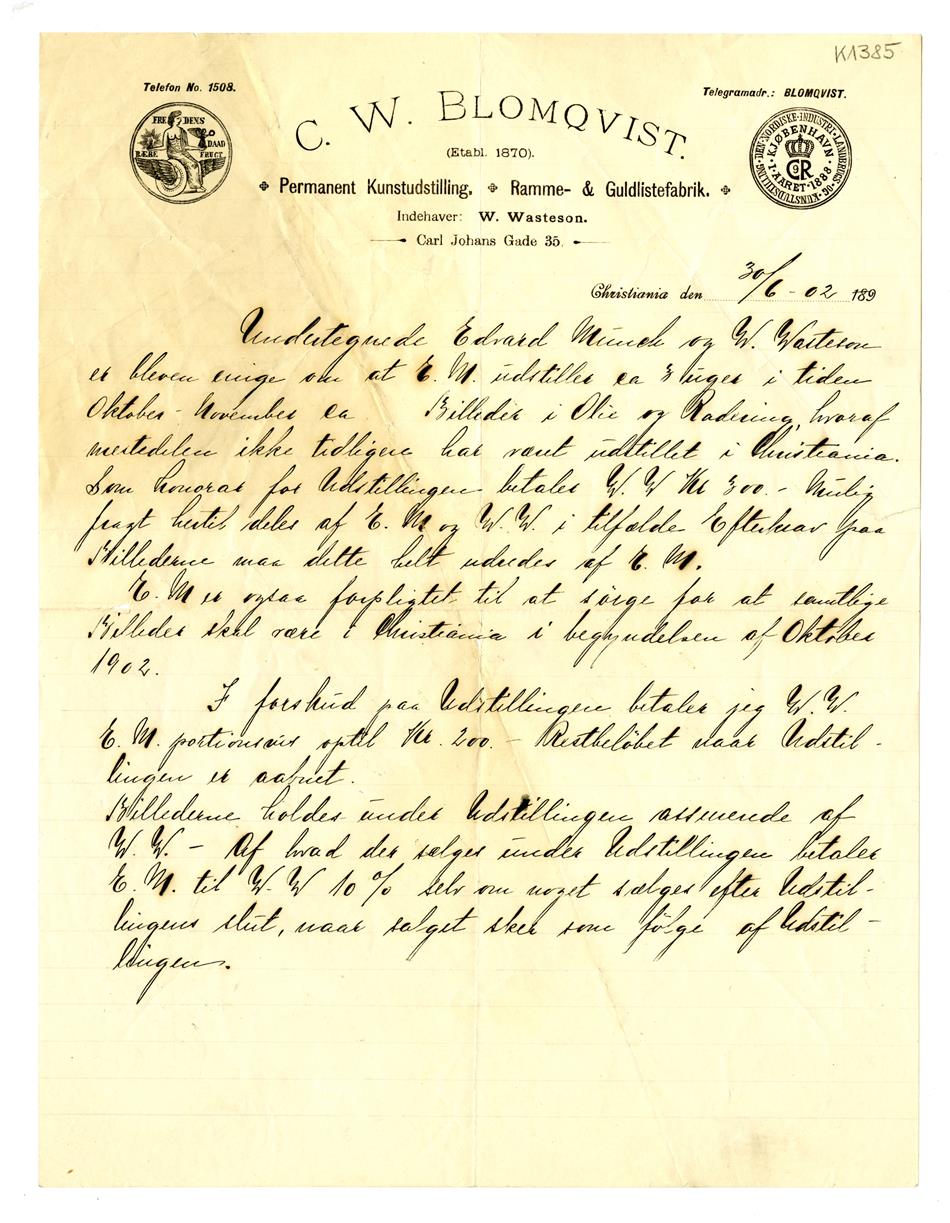 K1385
Telefon No. 1508.
Telegramadr.: BLOMQVIST.
C. W. BLOMQVIST.
FREDENS
DAAD
BÆRE
FRUCT
DEN·NORDISKE·INDUSTRI·LANDBRUGS·OG·KUNSTUDSTILLING
KJØBENHAVN·I·AARET·1888
(Etabl. 1870).
Permanent Kunstudstilling. Ramme- & Guldlistefabrik.
Indehaver: W. Wasteson.
Carl Johans Gade 35.
Christiania den 30/6 - 02 189
Undertegnede Edvard Munch og W. Wasteson
er bleven enige om at E. M. udstiller ca 3 uger i tiden
Oktober - November ca Billeder i Olie og Radering, hvoraf
mestedelen ikke tidligere har været udstillet i Christiania.
Som honorar for Udstillingen betaler W. W Kr 300.- Mulig
fragt hertil deles af E. M og W. W. i tilfælde Efterkrav paa
Billederne maa dette helt udredes af E. M.
E. M er ogsaa forpligtet til at sørge for at samtlige
Billeder skal være i Christiania i begyndelsen af Oktober
1902.
I forskud paa Udstillingen betaler jeg W. W.
E. M. portionsvis optil Kr. 200.- Restbeløbet naar Udstil-
lingen er aabnet.
Billederne holdes under Udstillingen assurerede af
W. W. - Af hvad der sælges under Udstillingen betaler
E. M. til W. W 10 % selv om noget sælges efter Udstil-
lingens slut, naar salget sker som følge af Udstil-
lingen.